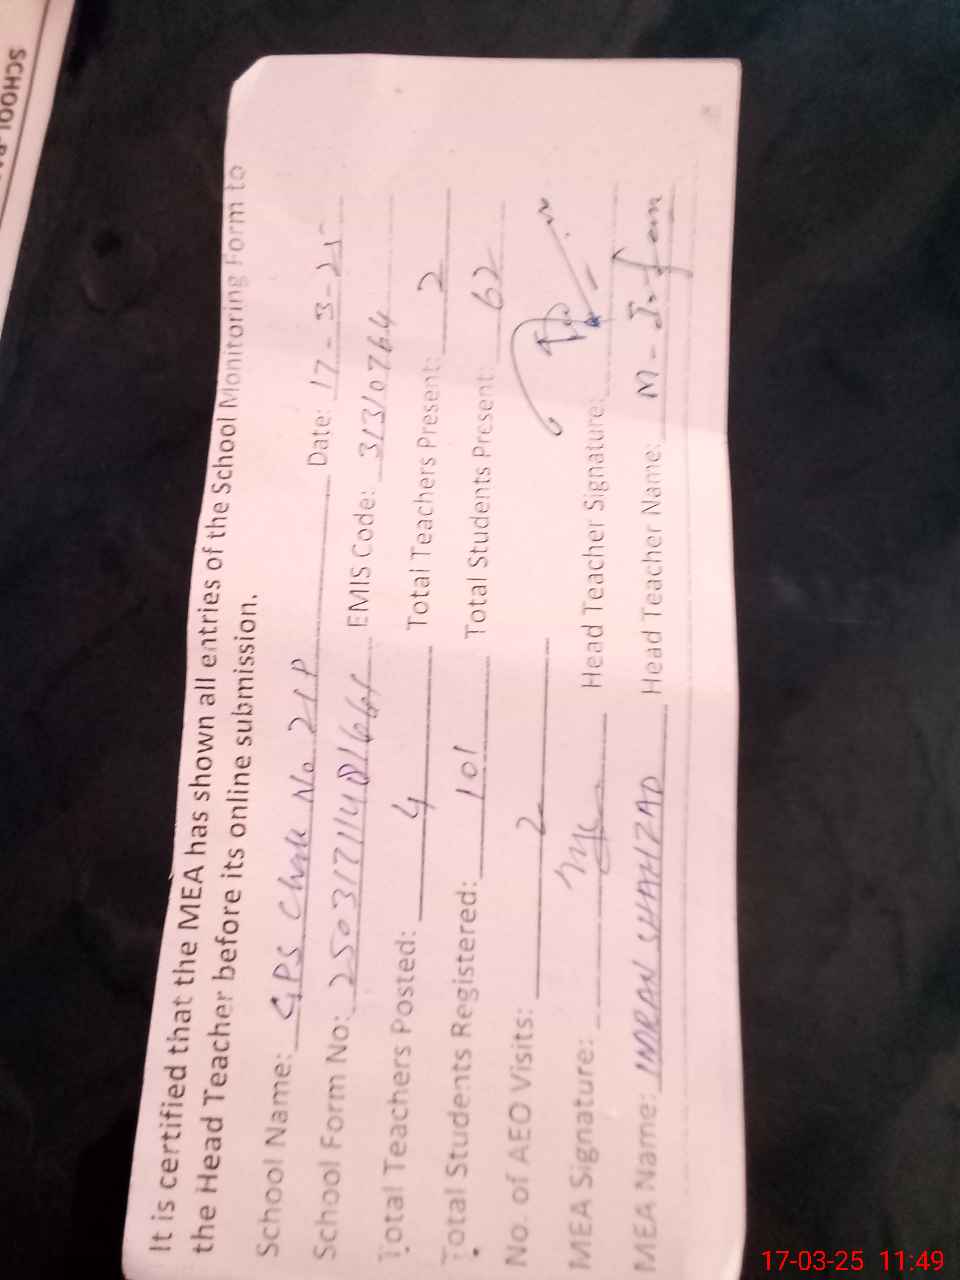 It is certified that the MEA has shown all entries of the School Monitoring Form to
the Head Teacher before its online submission.
School Name: GPS Chak No 21P Date: 17-3-25
School Form No: EMIS Code: 31310764
Total Teachers Posted: 4 Total Teachers Present: 2
Total Students Registered: 101 Total Students Present: 62
No. of AEO Visits: 2
MEA Signature: Head Teacher Signature:
MEA Name: IMRAN SHAHZAD Head Teacher Name: M-Irfan
17-03-25 11:49